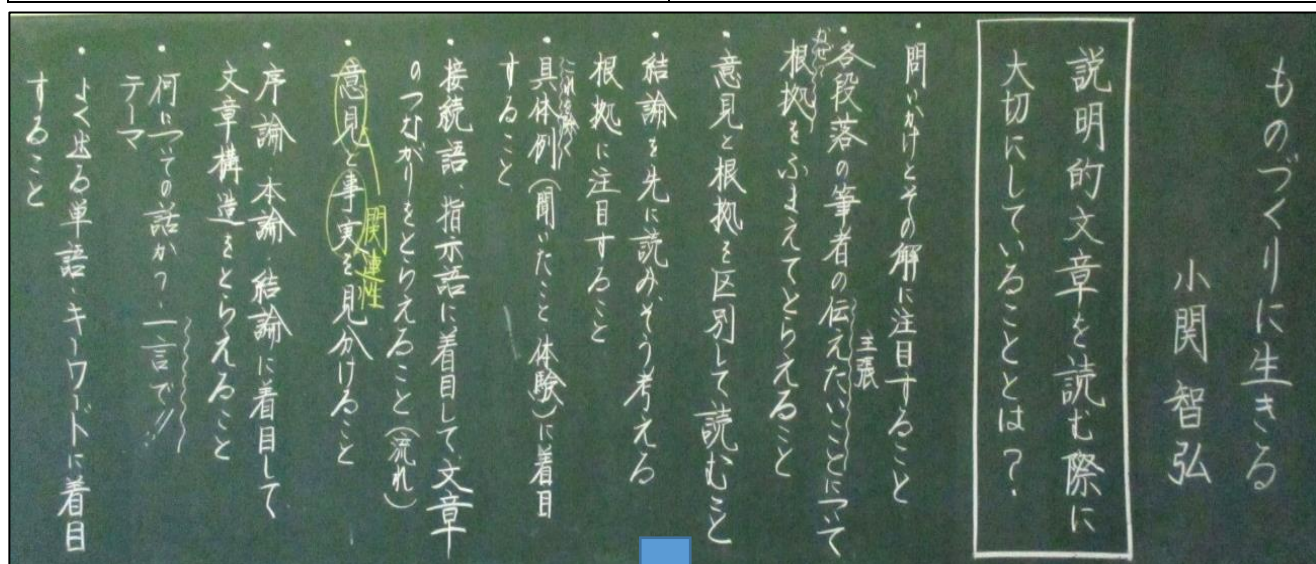 ものづくりに生きる
小関 智弘
説明的文章を読む際に
大切にしていることとは?
・問いかけとその解に注目すること
主張
・各段落の筆者の伝えたいことについて
なぜ?
根拠をふまえてとらえること
・意見と根拠を区別して読むこと
・結論を先に読み、そう考える
根拠に注目すること
・具体例(聞いたこと、体験)に着目
すること
・接続語、指示語に着目して、文章
のつながりをとらえること(流れ)
関連性
・意見と事実を見分けること
・序論、本論、結論に着目して
文章構造をとらえること
・何についての話か?、一言で!!
テーマ
・よく出る単語、キーワードに着目
すること